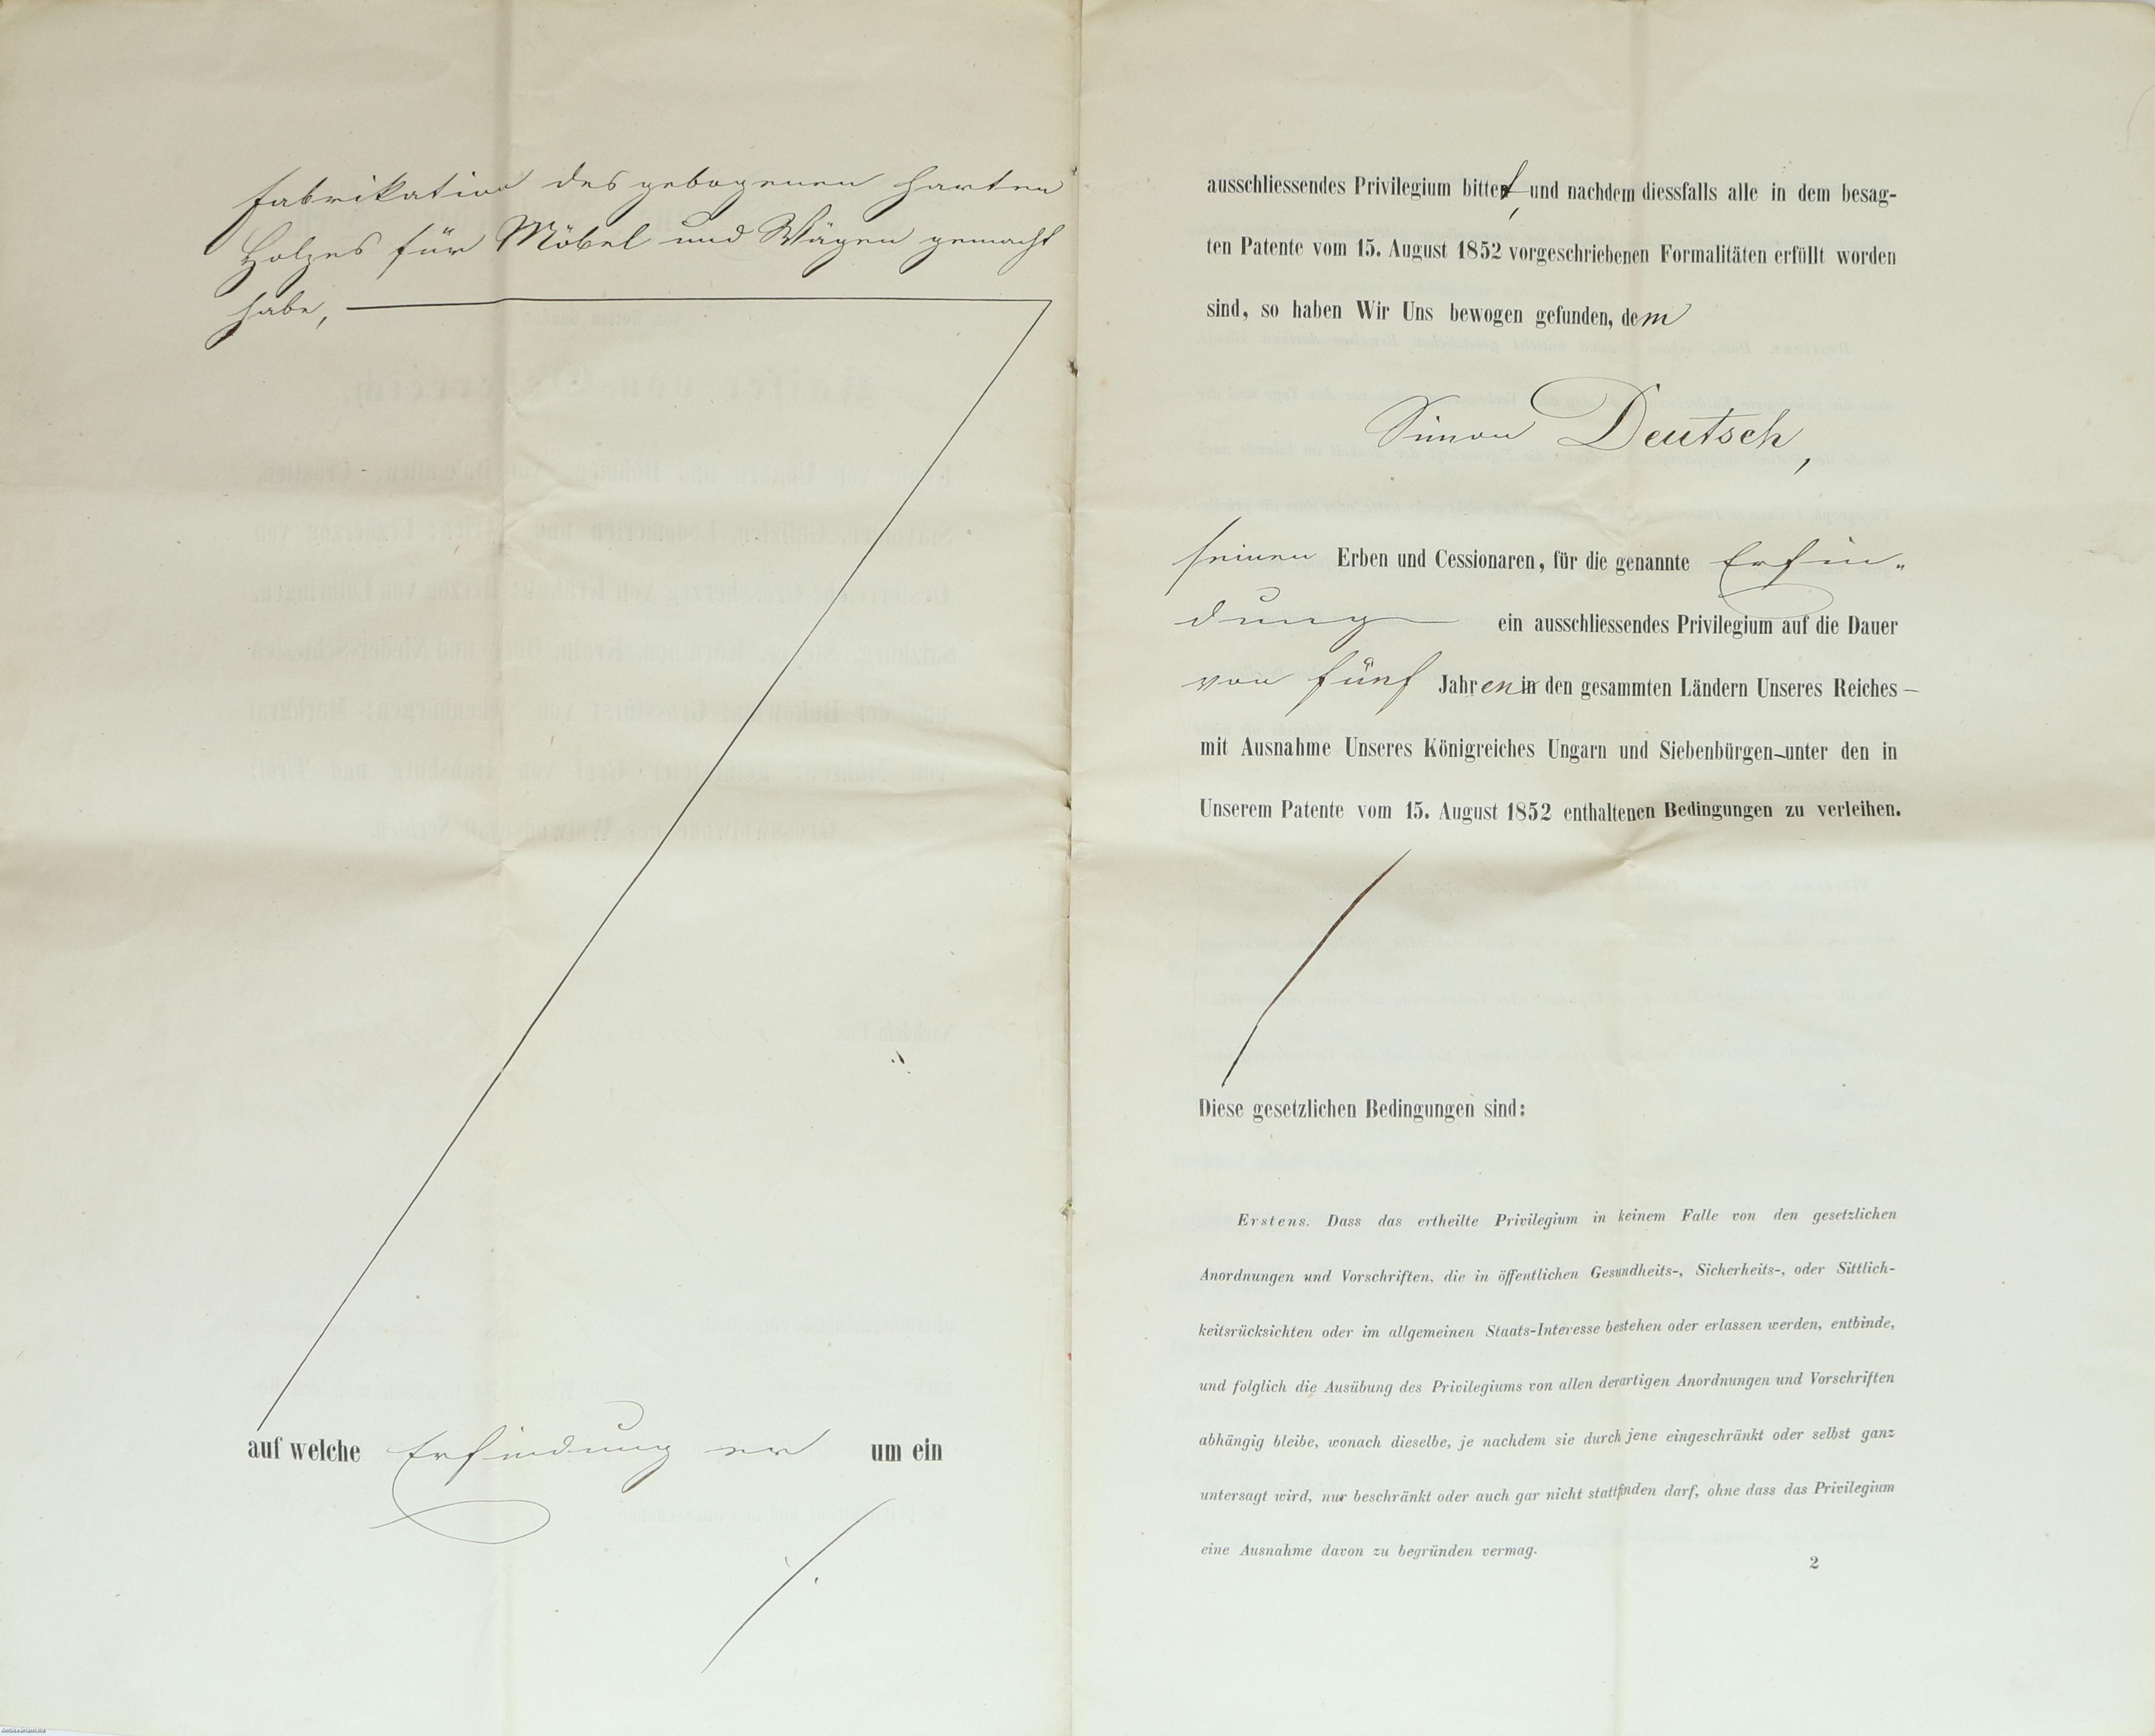 Fabrikation des gebogenen harten
Holzes für Möbel und Wägen gemacht
habe,
auf welche Erfindung er um ein
ausschliessendes Privilegium bittet, und nachdem diessfalls alle in dem besag-
ten Patente vom 15. August 1852 vorgeschriebenen Formalitäten erfüllt worden
sind, so haben Wir Uns bewogen gefunden, dem
Simon Deutsch,
seinen Erben und Cessionaren, für die genannte Erfin-
dung ein ausschliessendes Privilegium auf die Dauer
von fünf Jahren in den gesammten Ländern Unseres Reiches –
mit Ausnahme Unseres Königreiches Ungarn und Siebenbürgen – unter den in
Unserem Patente vom 15. August 1852 enthaltenen Bedingungen zu verleihen.
Diese gesetzlichen Bedingungen sind:
Erstens. Dass das ertheilte Privilegium in keinem Falle von den gesetzlichen
Anordnungen und Vorschriften, die in öffentlichen Gesundheits-, Sicherheits-, oder Sittlich-
keitsrücksichten oder im allgemeinen Staats-Interesse bestehen oder erlassen werden, entbinde,
und folglich die Ausübung des Privilegiums von allen derartigen Anordnungen und Vorschriften
abhängig bleibe, wonach dieselbe, je nachdem sie durch jene eingeschränkt oder selbst ganz
untersagt wird, nur beschränkt oder auch gar nicht stattfinden darf, ohne dass das Privilegium
eine Ausnahme davon zu begründen vermag.
2